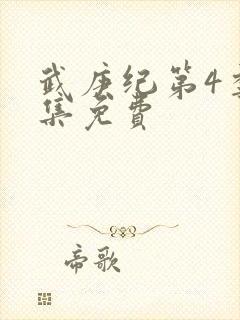 武庚纪第4季
集免费
帝歌